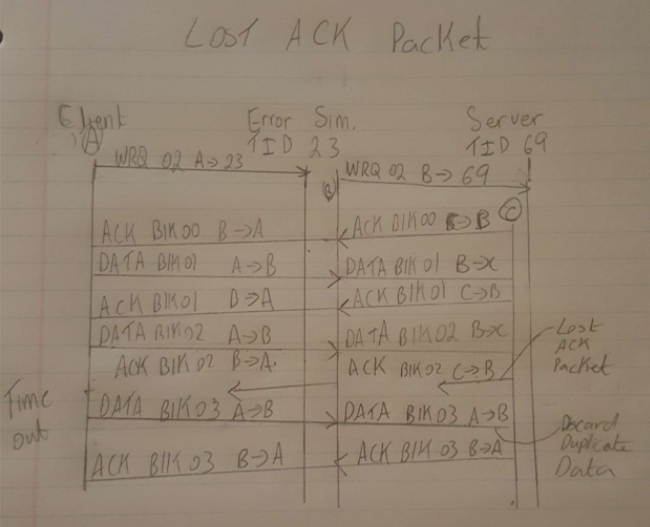 LOST ACK Packet
Client Error Sim. Server
A TID 23 TID 69
WRQ 02 A→23 WRQ 02 B→69
B C
ACK Blk00 B→A ACK Blk00 C→B
DATA Blk01 A→B DATA Blk01 B→x
ACK Blk01 B→A ACK Blk01 C→B
DATA Blk02 A→B DATA Blk02 B→x
ACK Blk02 B→A. ACK Blk02 C→B
Lost
ACK
Packet
Time
out
DATA Blk03 A→B DATA Blk03 A→B
Discard
Duplicate
Data
ACK Blk03 B→A ACK Blk03 B→A